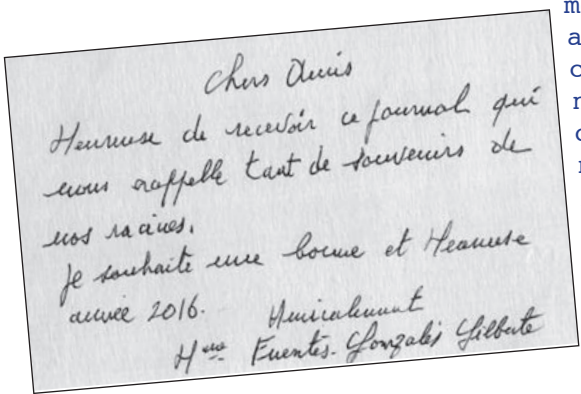 Chers Amis
Heureuse de recevoir ce journal qui
nous rappelle tant de souvenirs de
nos racines.
Je souhaite une bonne et Heureuse
année 2016. Amicalement
Mme Fuentes-Gonzalès Gilberte